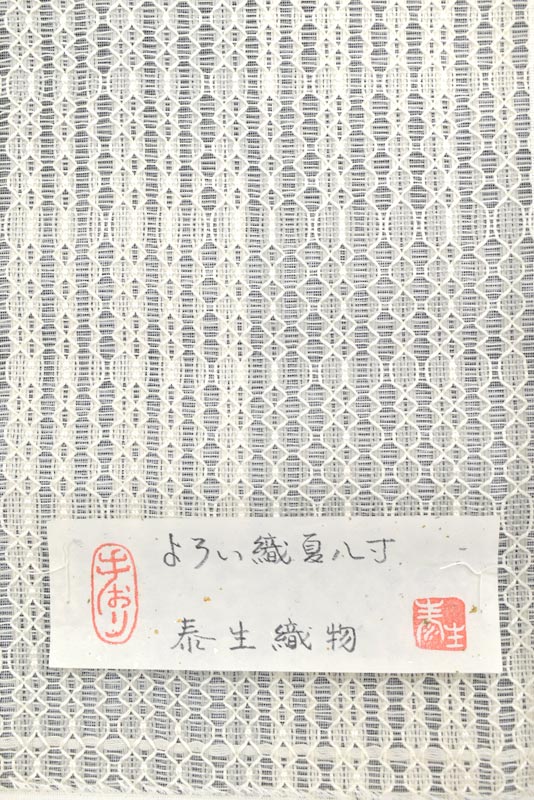 手おり
よろい織夏八寸
泰生織物
泰生